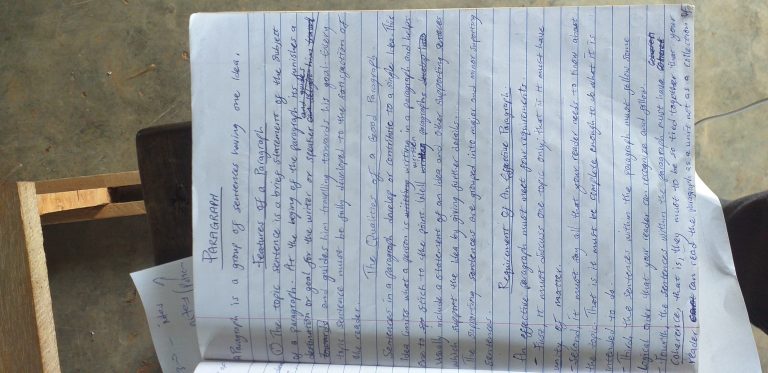 PARAGRAPH
A Paragraph is a group of sentences having one idea.
Features of a Paragraph
① The topic sentence is a brief statement of the subject
of a paragraph. At the of the paragraph his a
or goal for the writer or speaker and guides
and guides him travelling towards his goal. Every
topic sentence must be fully developed to the satisfaction of
the reader.
The Qualities of a Good Paragraph
Sentences in a paragraph develop or contribute to a single idea. This
idea limits what a person is writing in a paragraph and helps
one to stick to the point. Well written paragraphs
usually include a statement of an idea and other supporting sentences
which support the idea by giving further details.
The supporting sentences are grouped into major and minor supporting
sentences.
Requirement of An Effective Paragraph
An effective paragraph must meet four requirements
- First it must discuss one topic only, that is it must have
unity of matter.
- Second it must say all that your reader needs to know about
the topic. That is it must be complete enough to do what it is
intended to do
- Third the sentences within the paragraph must follow some
logical order that your reader can recognise and follow
- Fourth, the sentences within the paragraph must have
Coherence, that is, they must to be so tied together that your
reader can read the paragraph as a unit not as a collection of